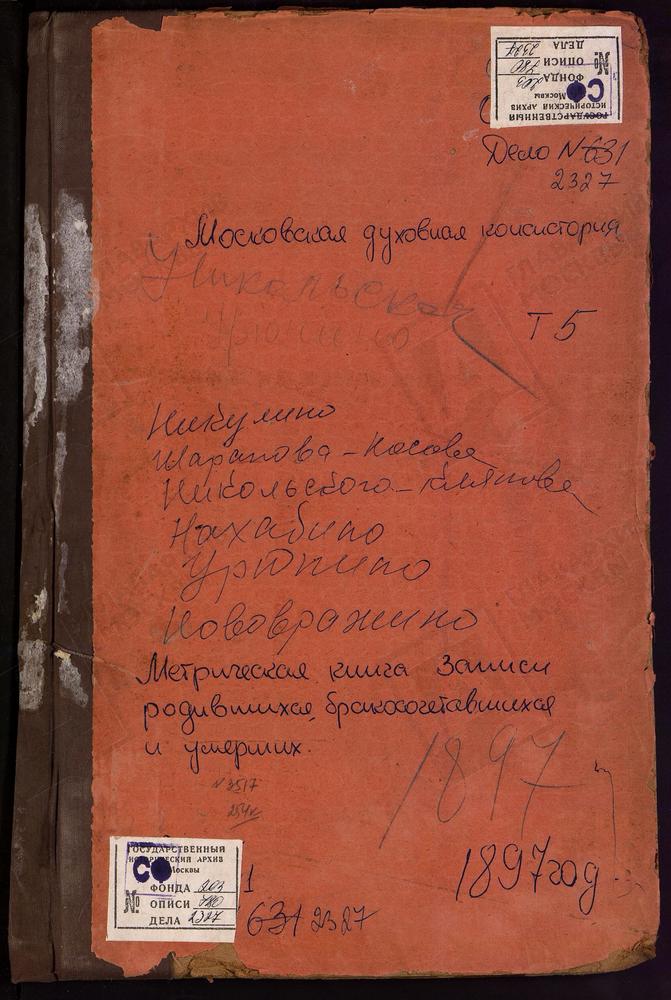 ГОСУДАРСТВЕННЫЙ
ИСТОРИЧЕСКИЙ АРХИВ
Москвы
СФ
№
ФОНДА 203
ОПИСИ 780
ДЕЛА 2327
Дело N 631
2327
Московская духовная консистория
Никольская
Урюпино
Т 5
Никулино
Шарапова-Косова
Никольского-
Нахабино
Урюпино
Нововражино
Метрическая книга записи
родившихся, бракосочетавшихся
и умерших.
1897
N 3517
254л
1897 год.
ГОСУДАРСТВЕННЫЙ
ИСТОРИЧЕСКИЙ АРХИВ
Москвы
СФ
№
ФОНДА 203
ОПИСИ 780
ДЕЛА 2327
1
631 2327